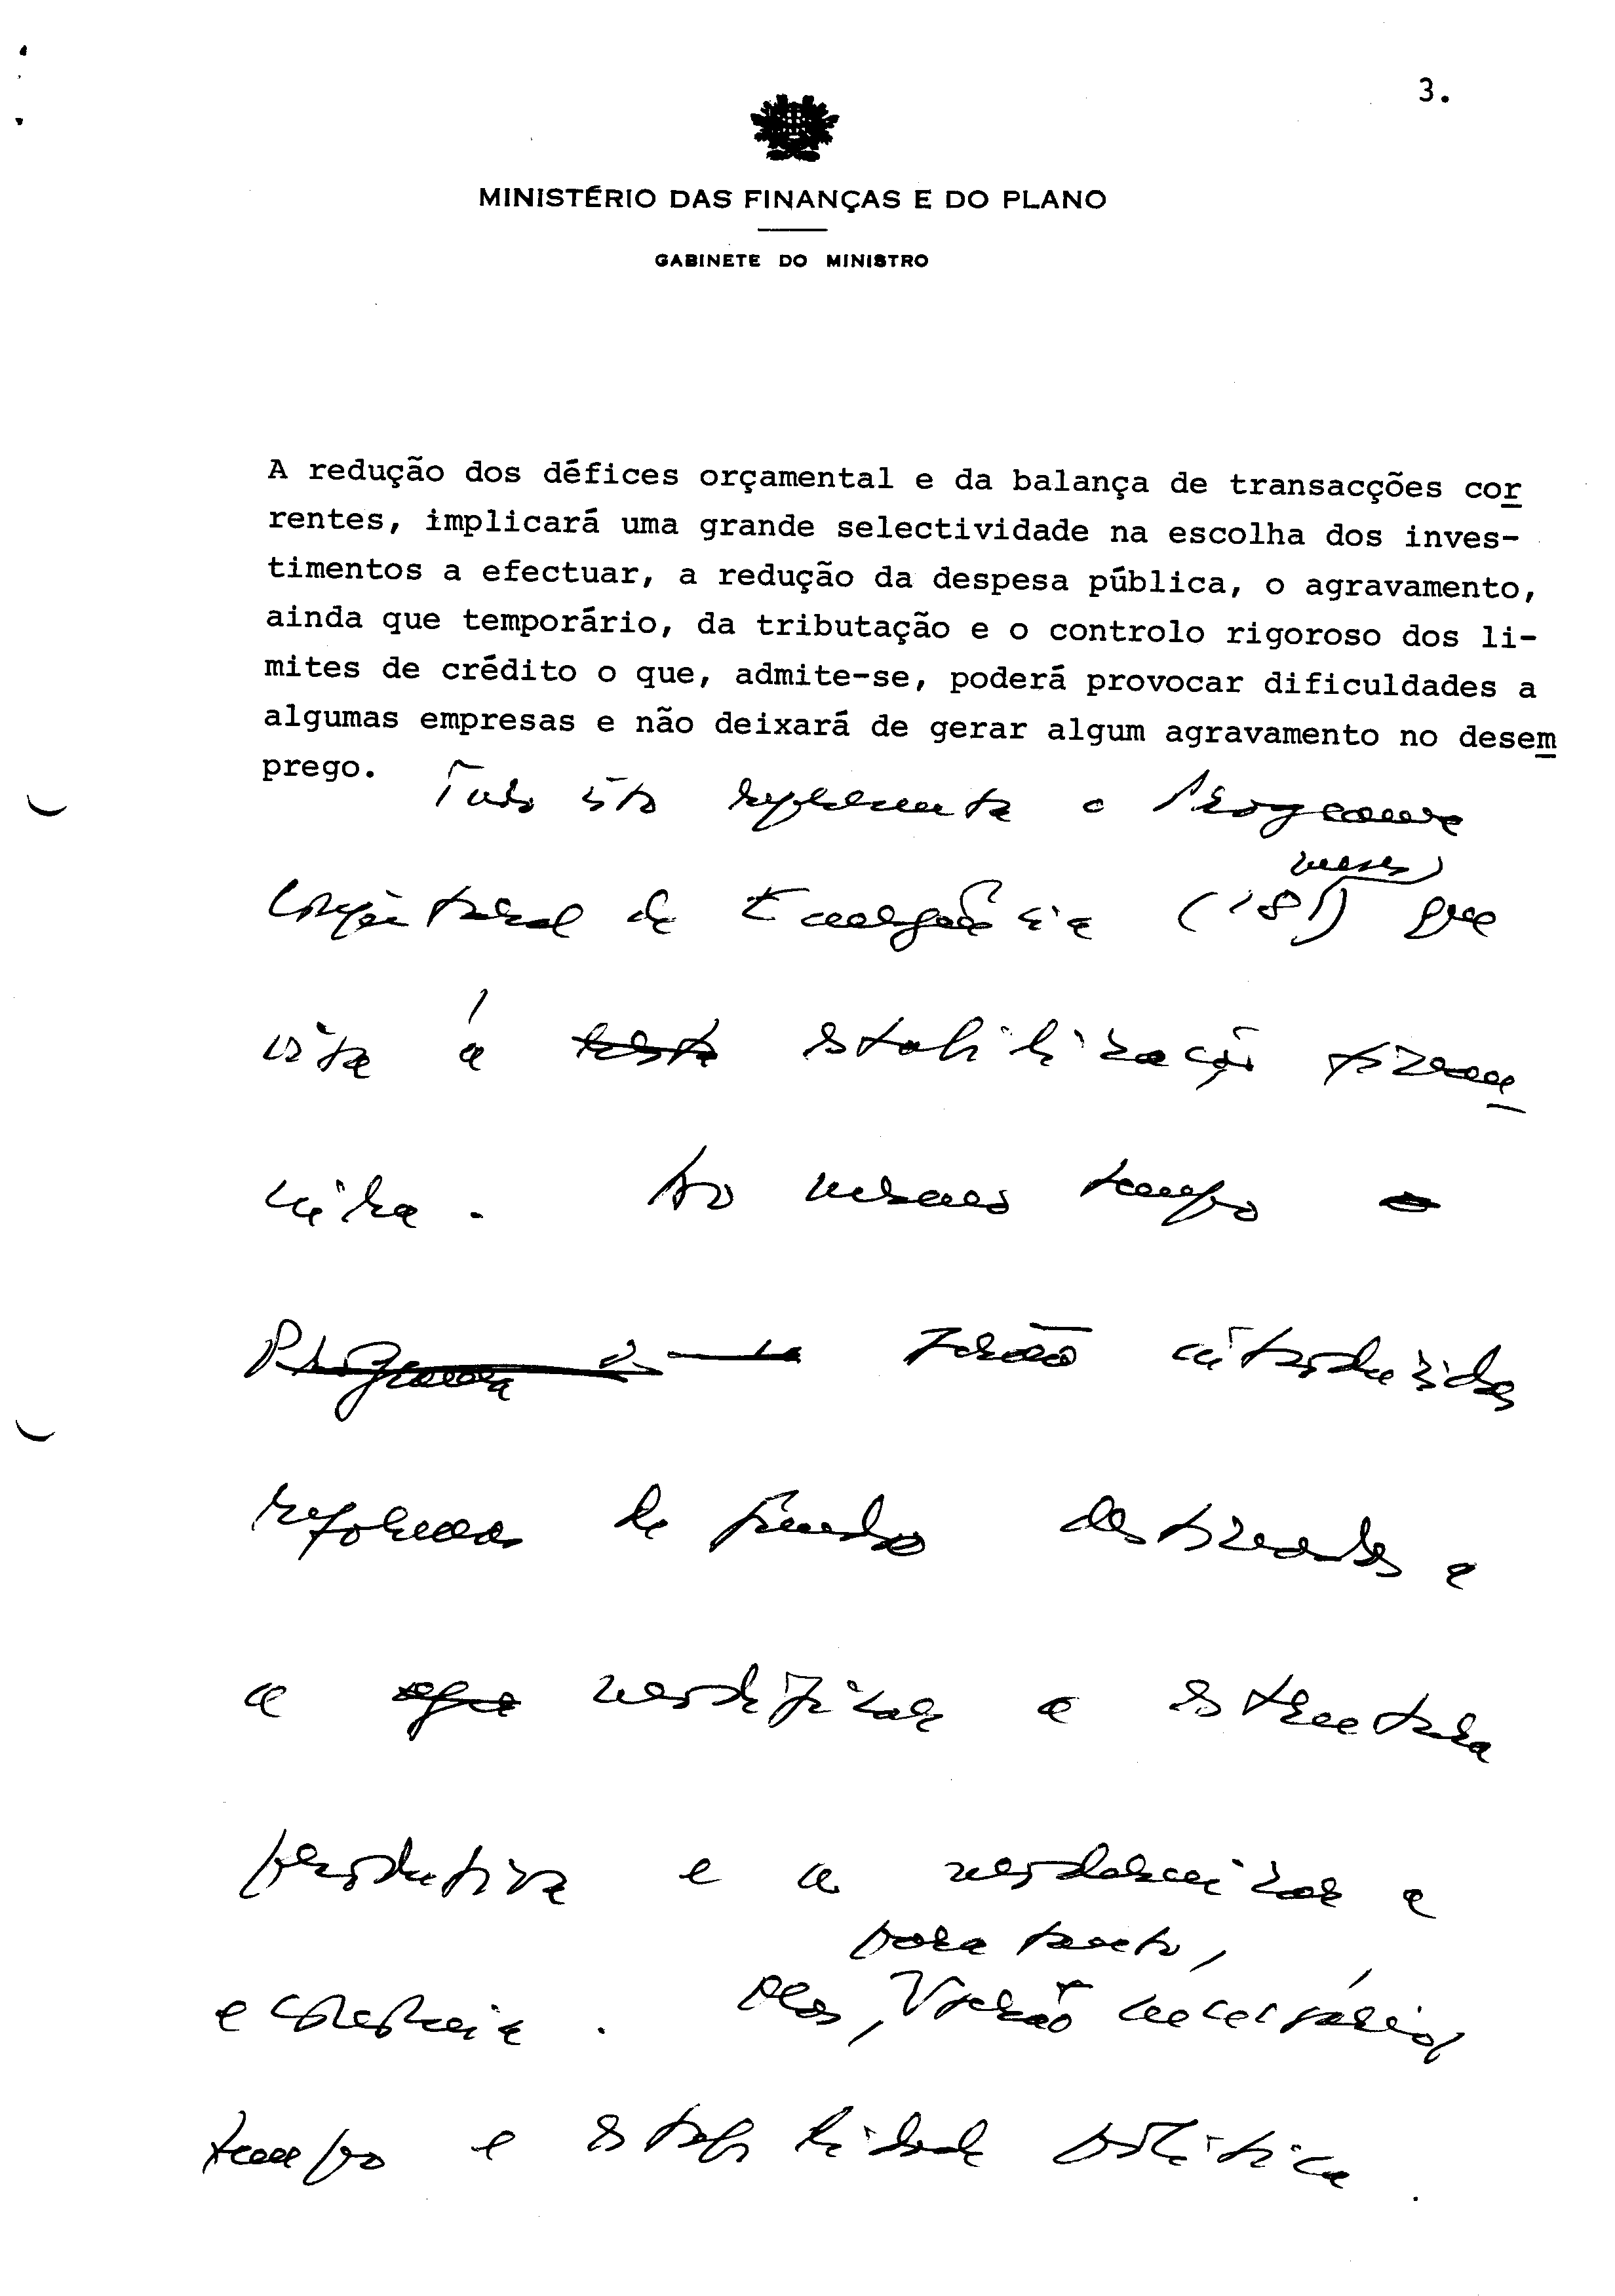 3.
MINISTÉRIO DAS FINANÇAS E DO PLANO
GABINETE DO MINISTRO
A redução dos défices orçamental e da balança de transacções cor
rentes, implicará uma grande selectividade na escolha dos inves-
timentos a efectuar, a redução da despesa pública, o agravamento,
ainda que temporário, da tributação e o controlo rigoroso dos li-
mites de crédito o que, admite-se, poderá provocar dificuldades a
algumas empresas e não deixará de gerar algum agravamento no desem
prego. Tudo isto representa o Programa
meses
Conjuntural de Emergência (18) que
visa à estabilização finan
ceira. Ao mesmo tempo o
Programa serão introduzidas
reformas de fundo destinadas a
a modificar a estrutura
produtiva e a modernizar a
para tanto,
economia. Mas, serão necessários
tempo e estabilidade política.